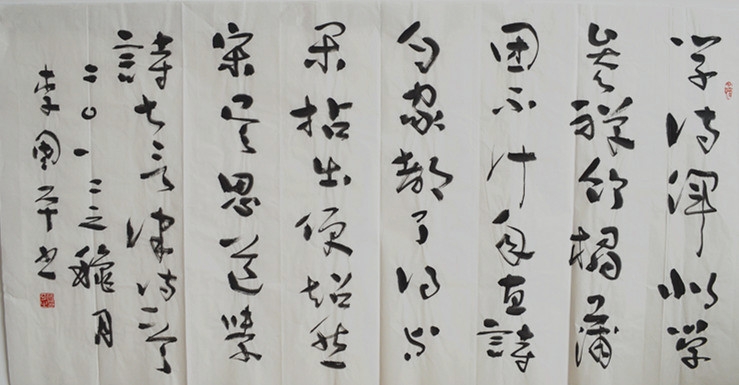 学诗浑似学
参禅竹榻蒲
团不计年直詩
自家都了得等
闲拈出便超然
宋吴思道学
詩七言律诗一首
二〇一二之穐月
李国平书